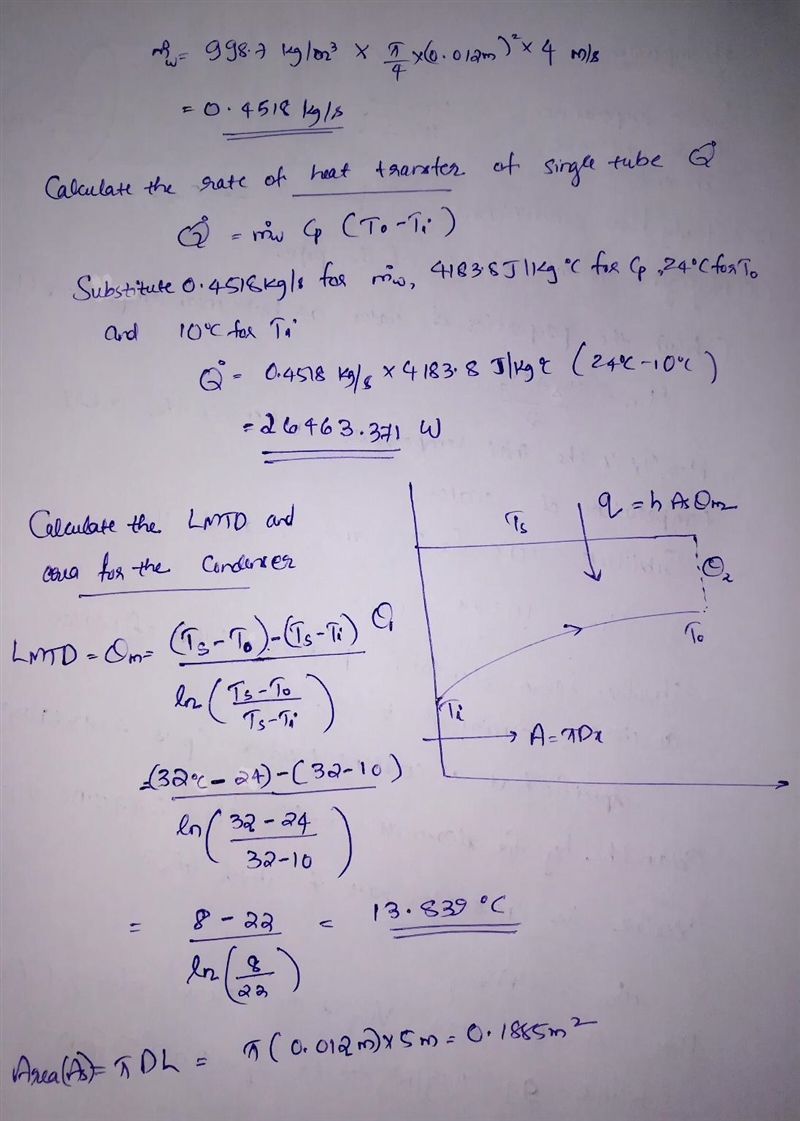 ṁw = 998.7 kg/m³ × π/4 × (0.012m)² × 4 m/s
= 0.4518 kg/s
Calculate the rate of heat transfer of single tube Q̇
Q̇ = ṁw Cp (To - Ti)
Substitute 0.4518 kg/s for ṁw, 4183.8 J/kg °C for Cp, 24°C for To
and 10°C for Ti
Q̇ = 0.4518 kg/s × 4183.8 J/kg °C (24°C - 10°C)
= 26463.371 W
Calculate the LMTD and
area for the Condenser
LMTD = Θm = (Ts - To) - (Ts - Ti) / ln (Ts - To / Ts - Ti)
= (32°C - 24) - (32 - 10) / ln (32 - 24 / 32 - 10)
= 8 - 22 / ln (8 / 22) = 13.839 °C
Area (As) = π D L = π (0.012 m) × 5 m = 0.1885 m²
Ts
q = h As Θm
Θ2
To
Θ1
Ti
A = πDx